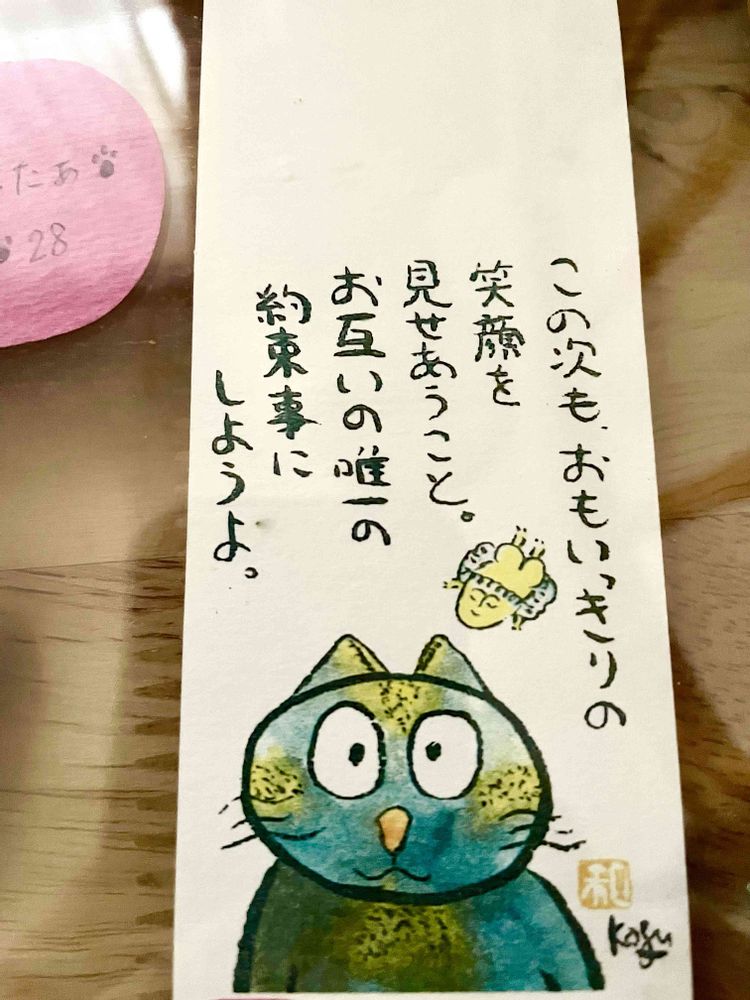 この次も、おもいっきりの
笑顔を
見せあうこと。
お互いの唯一の
約束事に
しようよ。
和
Kazu
たあ
28